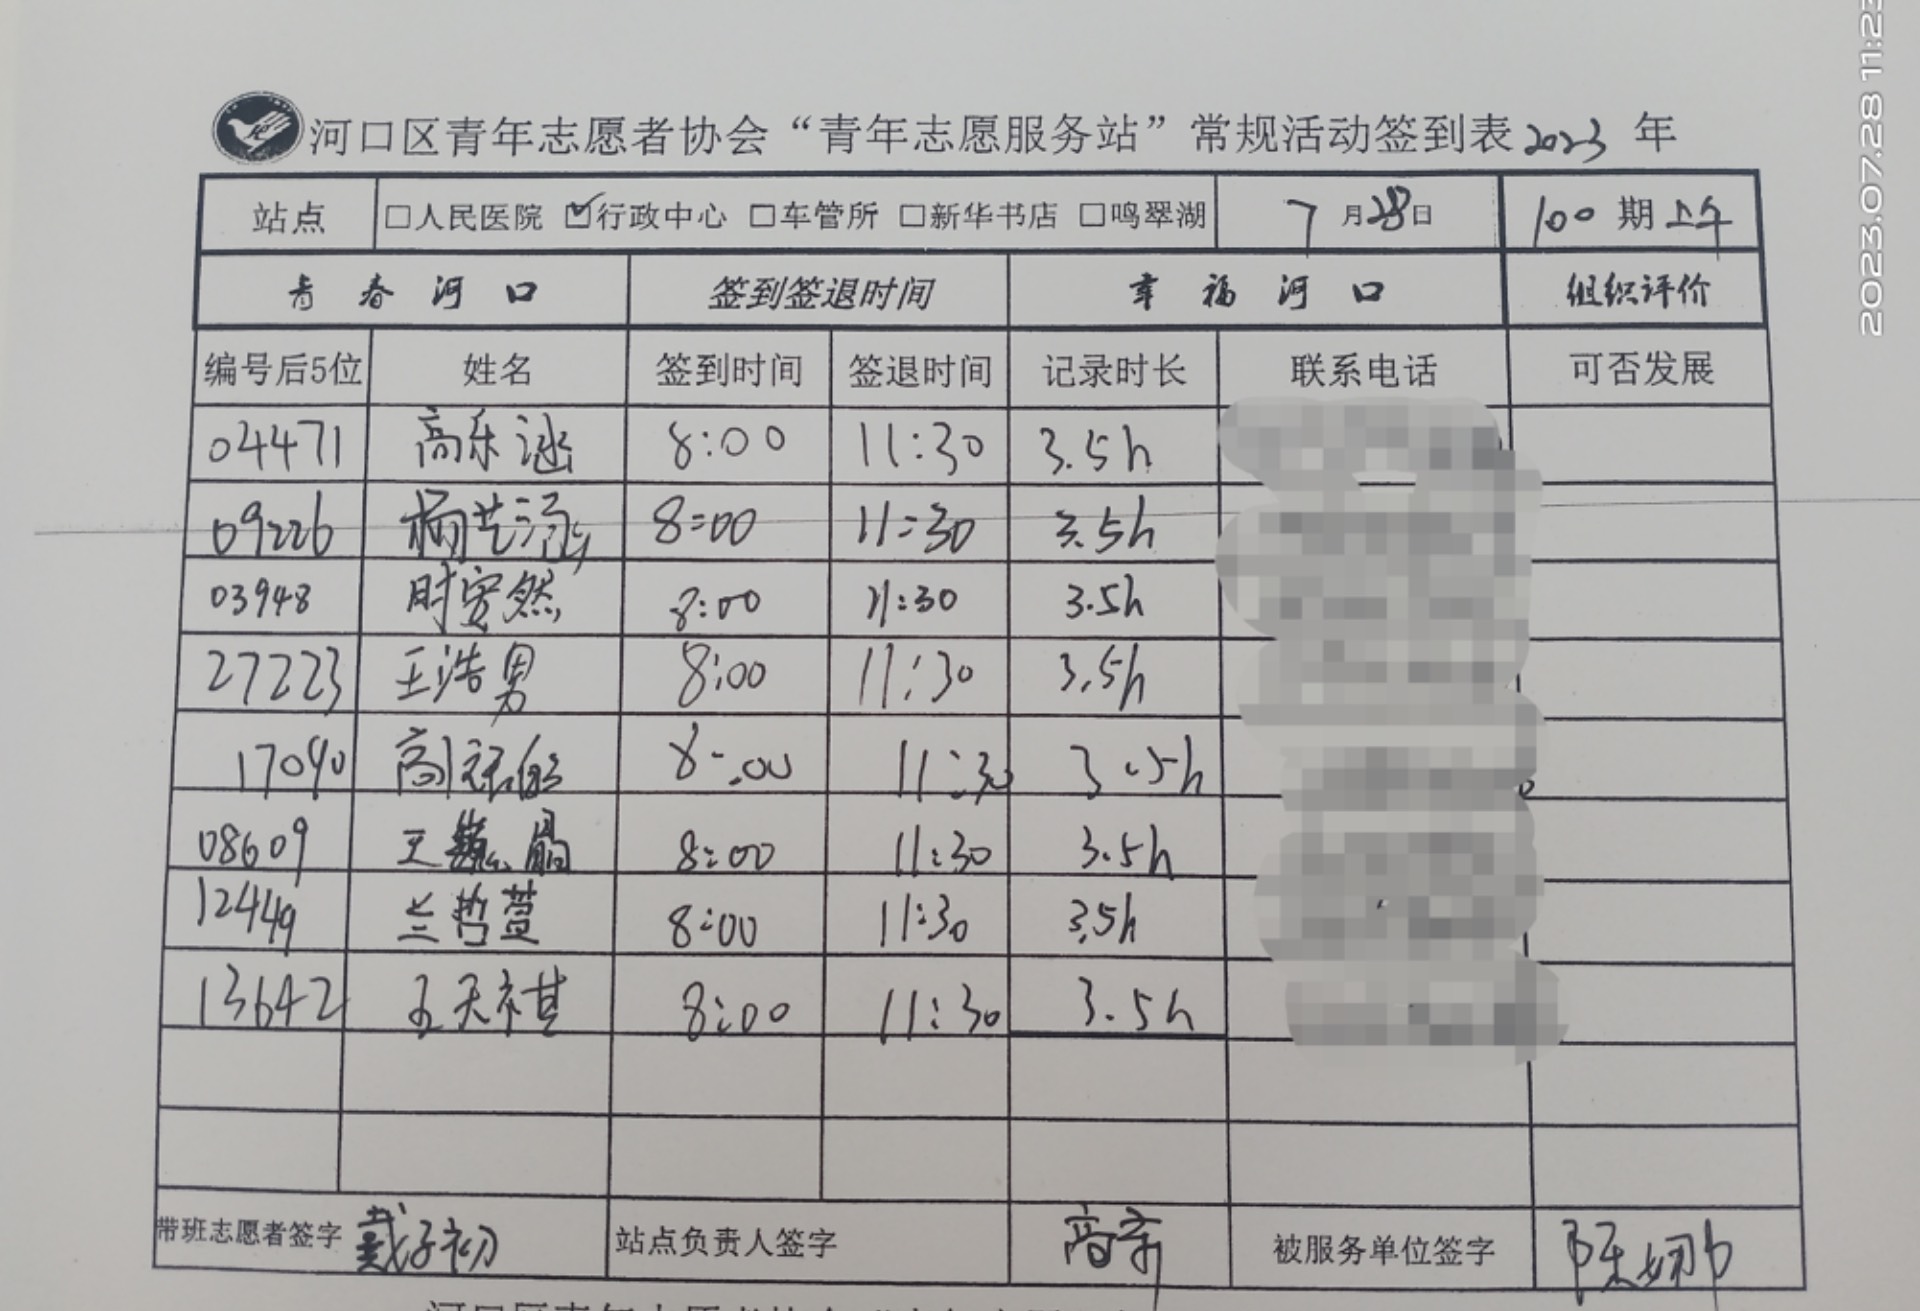 河口区青年志愿者协会“青年志愿服务站”常规活动签到表 2023 年
站点 □人民医院 ☑行政中心 □车管所 □新华书店 □鸣翠湖 7月28日 100期上午
青春河口 签到签退时间 幸福河口 组织评价
编号后5位 姓名 签到时间 签退时间 记录时长 联系电话 可否发展
04471 高乐涵 8:00 11:30 3.5h
09226 杨艺涵 8:00 11:30 3.5h
03948 时安然 8:00 11:30 3.5h
27223 王浩男 8:00 11:30 3.5h
17090 高 8:00 11:30 3.5h
08609 王 8:00 11:30 3.5h
12449 兰哲萱 8:00 11:30 3.5h
13642 王天祺 8:00 11:30 3.5h
带班志愿者签字 戴子初 站点负责人签字 被服务单位签字 陈娜
2023.07.28 11:23